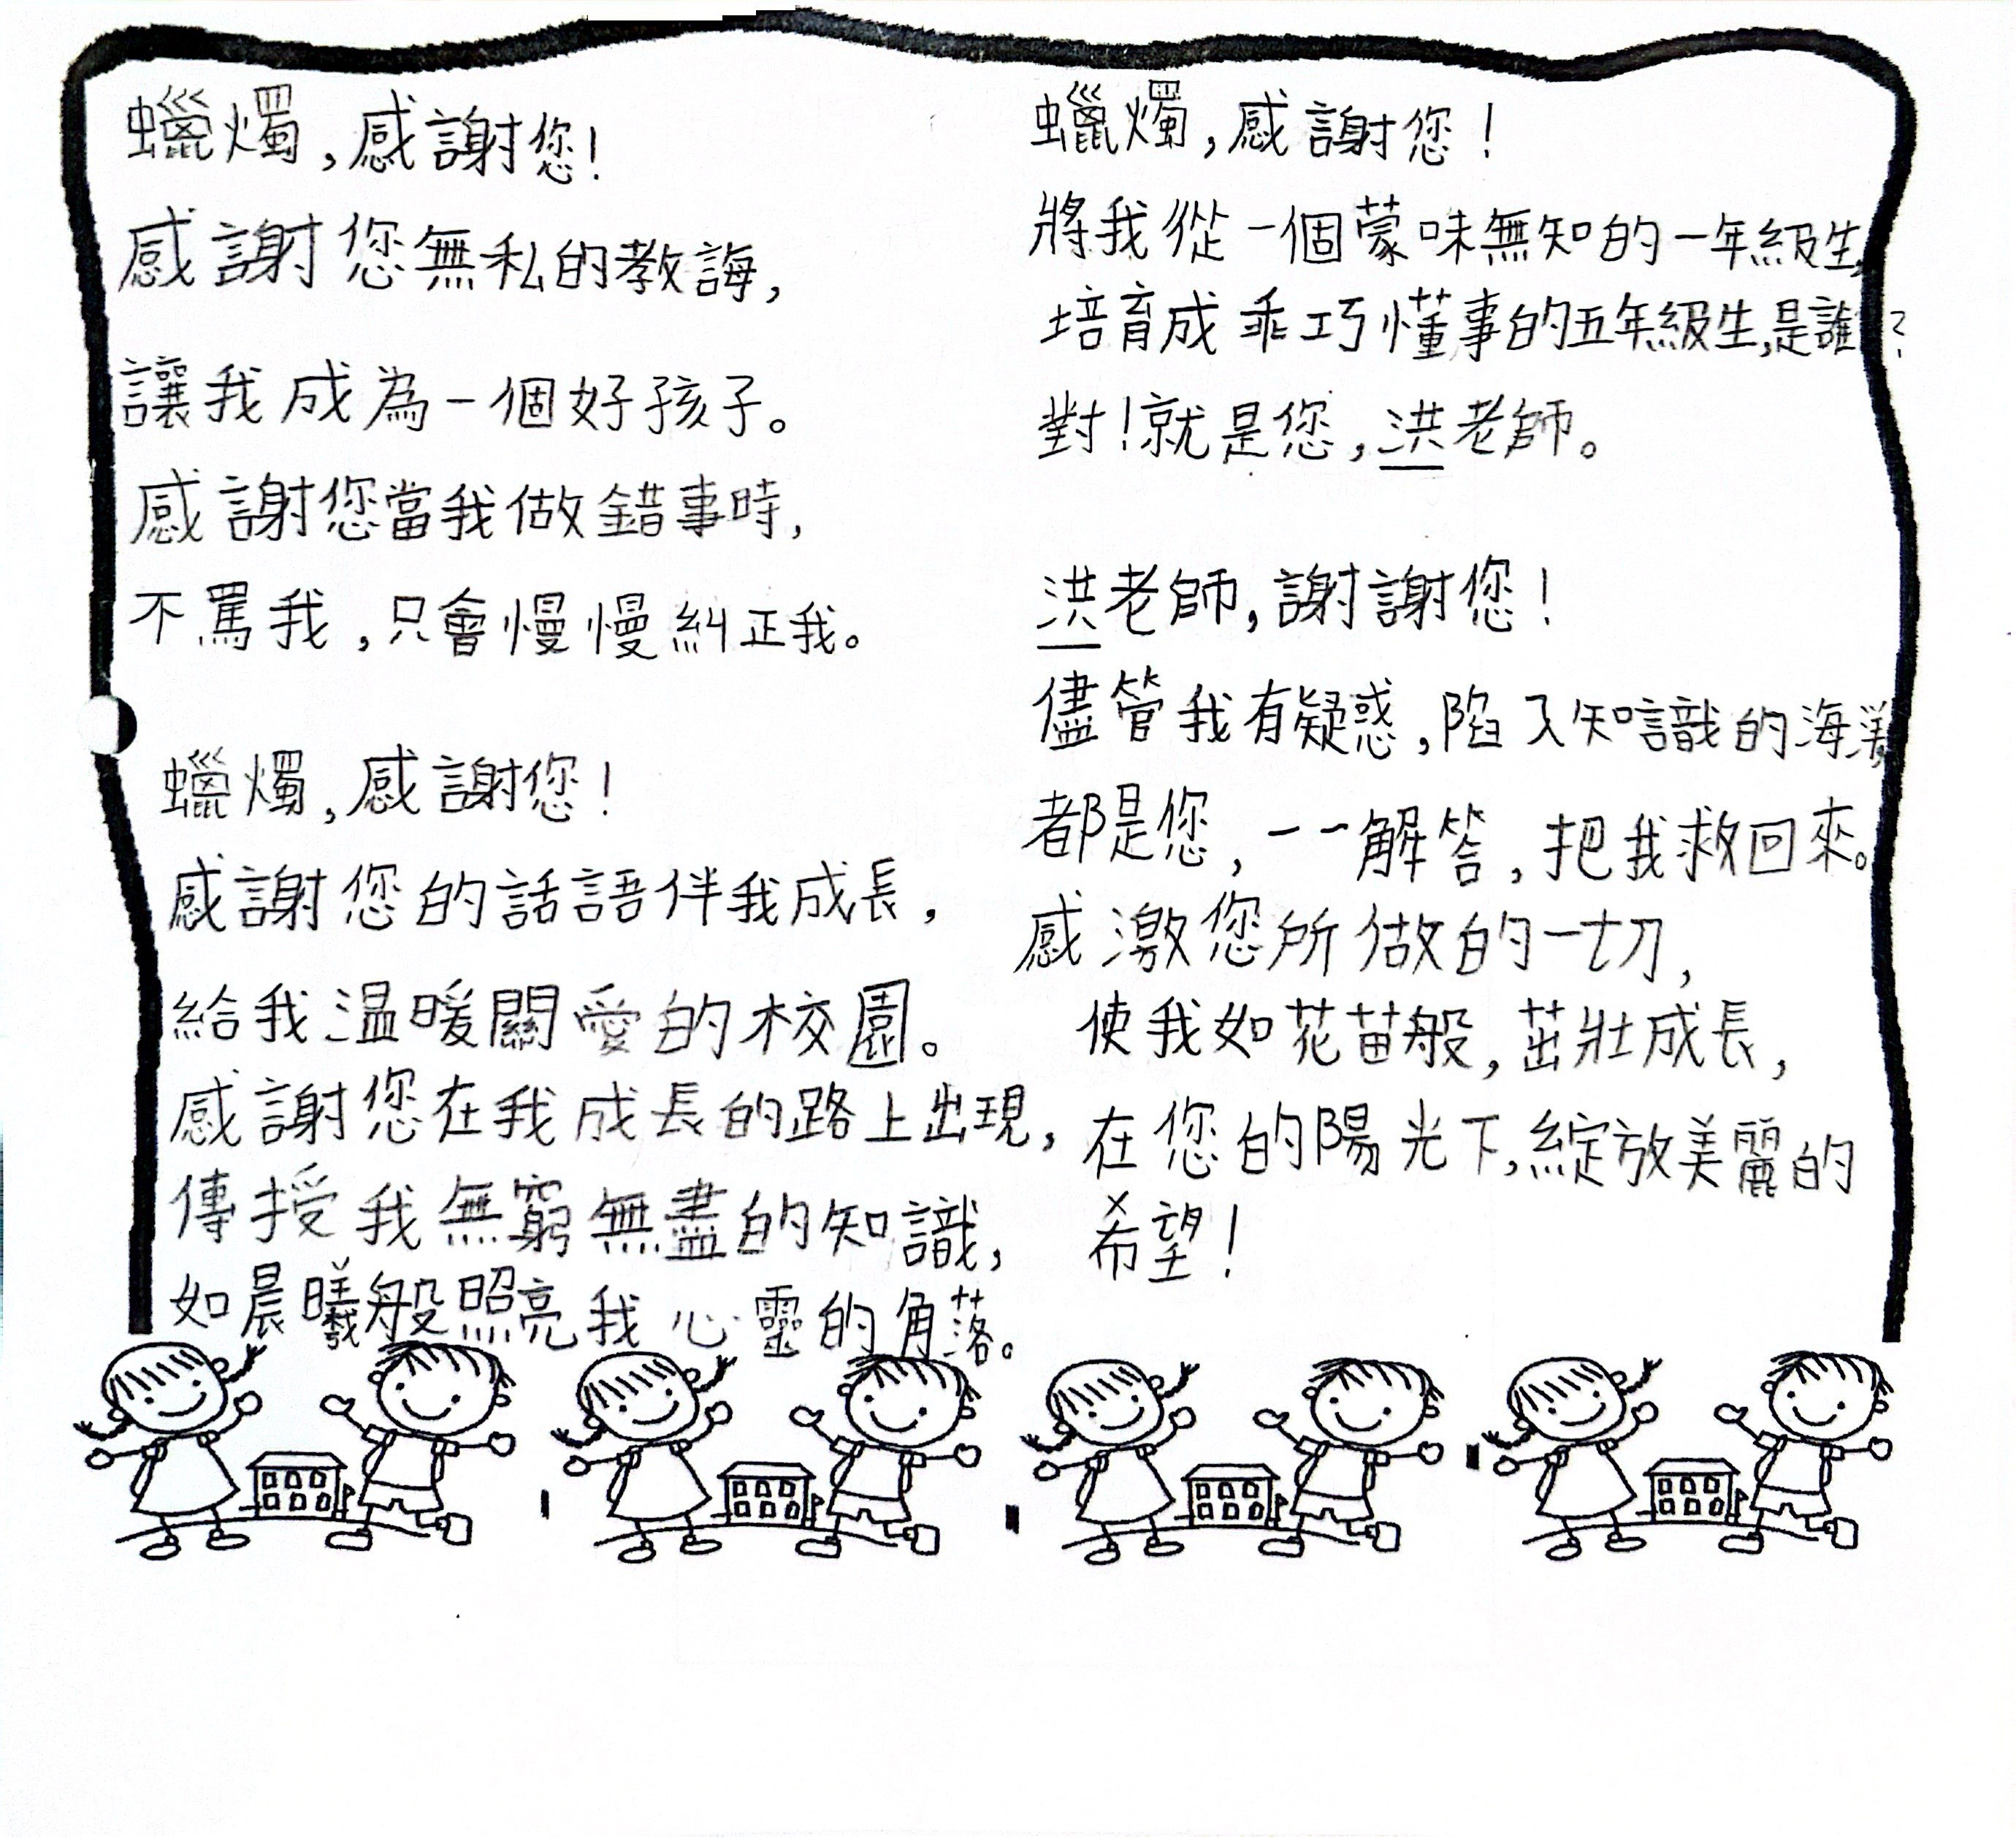 蠟燭,感謝您!
感謝您無私的教誨,
讓我成為一個好孩子。
感謝您當我做錯事時,
不罵我,只會慢慢糾正我。
蠟燭,感謝您!
感謝您的話語伴我成長,
給我溫暖關愛的校園。
感謝您在我成長的路上出現,
傳授我無窮無盡的知識,
如晨曦般照亮我心靈的角落。
蠟燭,感謝您!
將我從一個蒙味無知的一年級生,
培育成乖巧懂事的五年級生,是誰?
對!就是您,洪老師。
洪老師,謝謝您!
儘管我有疑惑,陷入知識的海洋,
都是您,一一解答,把我救回來。
感激您所做的一切,
使我如花苗般,茁壯成長,
在您的陽光下,綻放美麗的
希望!